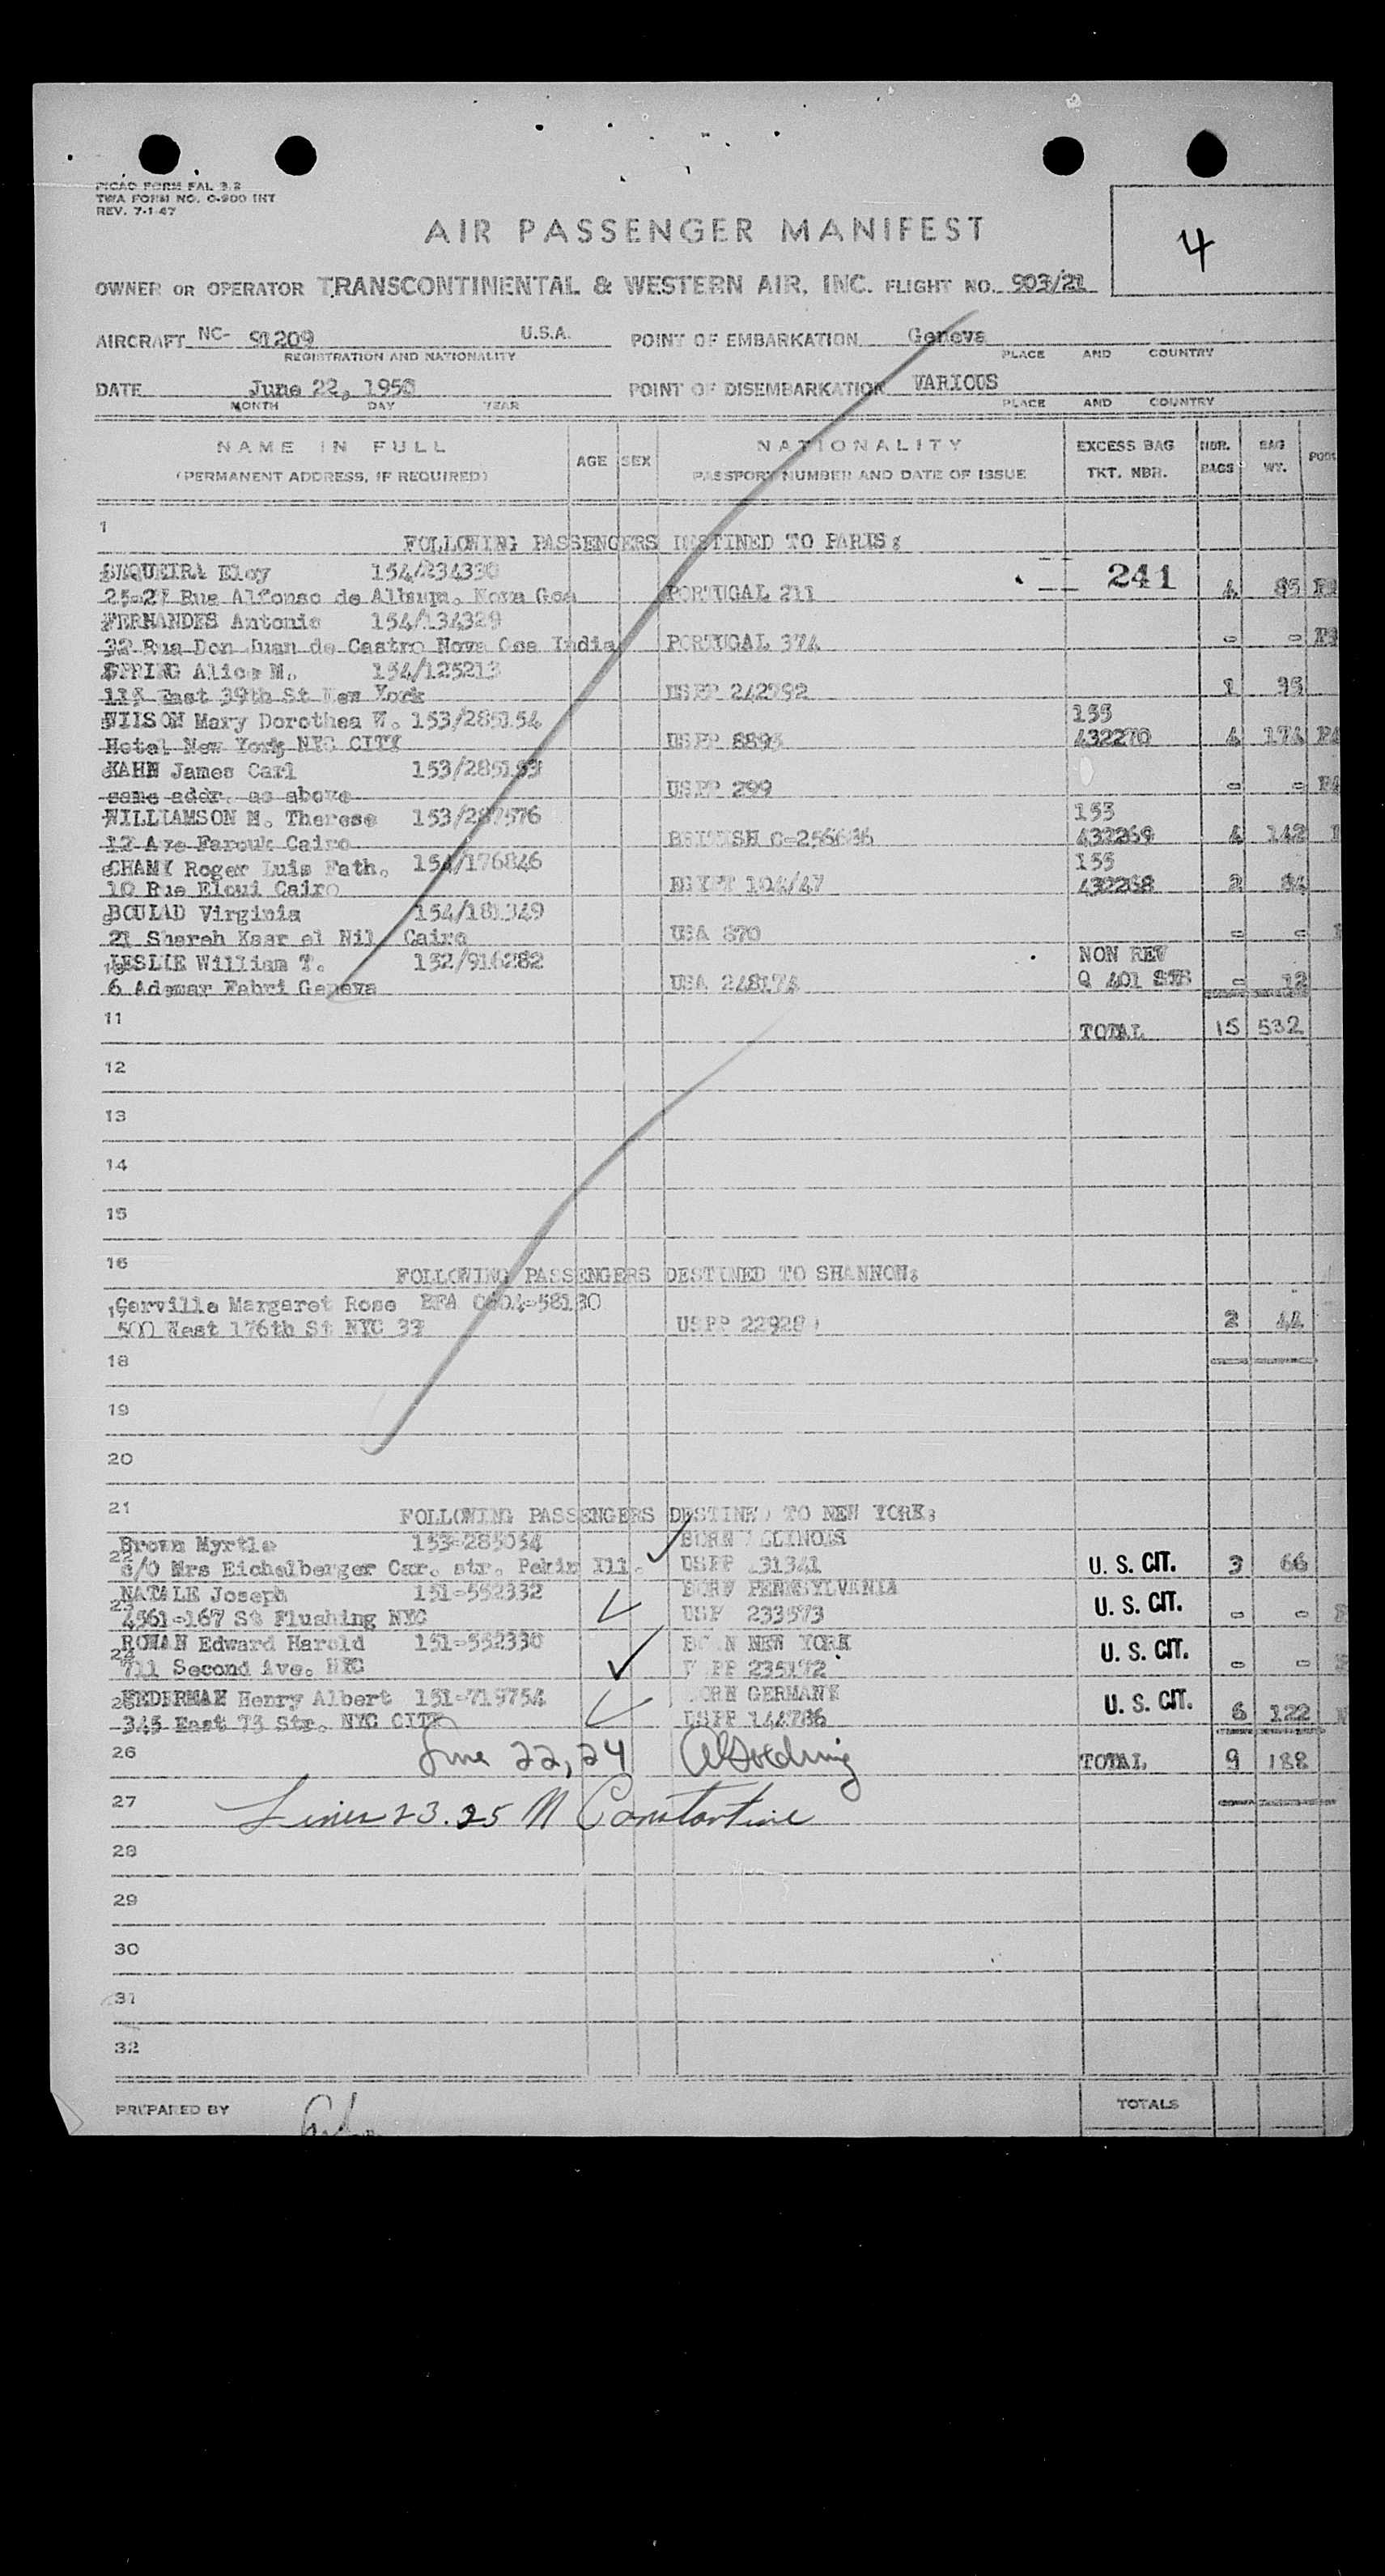 PICAO FORM FAL 3.2
TWA FORM NO. O-900 INT
REV. 7-1-47
4
AIR PASSENGER MANIFEST
OWNER OR OPERATOR TRANSCONTINENTAL & WESTERN AIR, INC. FLIGHT NO. 903/21
AIRCRAFT NC- 91209 U.S.A. POINT OF EMBARKATION Geneva
REGISTRATION AND NATIONALITY PLACE AND COUNTRY
DATE June 22, 1950 POINT OF DISEMBARKATION VARIOUS
MONTH DAY YEAR PLACE AND COUNTRY
NAME IN FULL AGE SEX NATIONALITY EXCESS BAG NBR. BAG
(PERMANENT ADDRESS, IF REQUIRED) PASSPORT NUMBER AND DATE OF ISSUE TKT. NBR. BAGS WT.
1
FOLLOWING PASSENGERS DESTINED TO PARIS:
SEQUEIRA Eloy 154/234330 241
25-27 Rua Alfonso de Nova Goa PORTUGAL 211 4 85
FERNANDES Antonio 154/134329
32 Rua Don Juan de Castro Nova Goa India PORTUGAL 374 - -
SPRING Alice M. 154/125213
115 East 39th St New York USPP 242792 1 35
WILSON Mary Dorothea W. 153/285154 155
Hotel New York NYC CITY USPP 8895 432270 4 174
KAHN James Carl 153/285153
same addr. as above USPP 299 - -
WILLIAMSON M. Therese 153/287576 155
12 Ave Farouk Cairo BRITISH C-256636 432269 4 142
CHAMY Roger Luis Fath. 154/176846 155
10 Rue Eloui Cairo EGYPT 104/47 432268 2 84
BOULAD Virginia 154/181349
21 Shareh Kasr el Nil Cairo USA 870 - -
LESLIE William T. 132/916282 NON REV
6 Ademar Fabri Geneva USA 248174 Q 401 STB - 12
11 TOTAL 15 532
12
13
14
15
16
FOLLOWING PASSENGERS DESTINED TO SHANNON:
Gerville Margaret Rose EFA 0604-58130
500 West 176th St NYC 33 USPP 22928 2 44
18
19
20
21
FOLLOWING PASSENGERS DESTINED TO NEW YORK:
Brown Myrtle 153-285054 BORN ILLINOIS
c/o Mrs Eichelberger Car. str. Pekin Ill. USPP 31341 U. S. CIT. 3 66
NATALE Joseph 151-552332 BORN PENNSYLVANIA
4561-167 St Flushing NYC USP 233573 U. S. CIT. - -
ROWAN Edward Harold 151-552330 BORN NEW YORK
711 Second Ave. NYC PP 235172 U. S. CIT. - -
NEDERMAN Henry Albert 151-719754 BORN GERMANY
345 East 73 Str. NYC CITY USPP 144786 U. S. CIT. 6 122
26 June 22, 24 TOTAL 9 188
27 Lines 23.25 M Constantine
28
29
30
31
32
PREPARED BY TOTALS